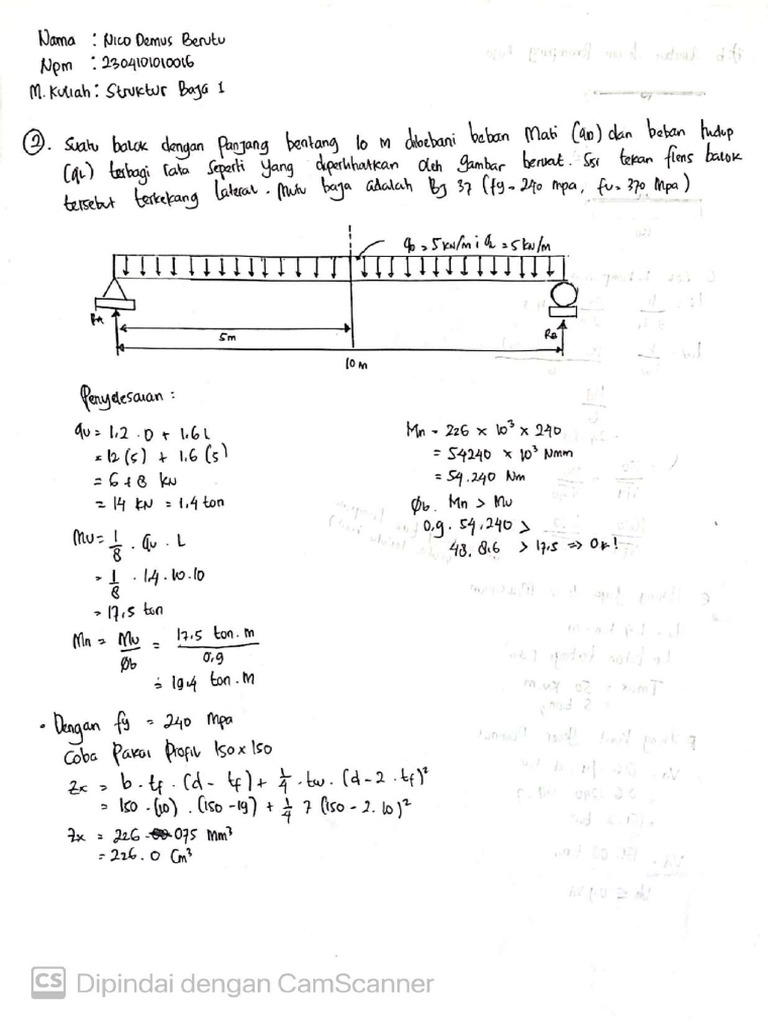 Nama : Nico Demus Berutu
Npm : 2304101010016
M. Kuliah : Struktur Baja 1
2. Suatu balok dengan Panjang bentang 10 M dibebani beban Mati (qD) dan beban hidup
(qL) terbagi rata seperti yang diperlihatkan oleh gambar berikut. Sisi tekan flens balok
tersebut terkekang lateral. Mutu baja adalah Bj 37 (fy = 240 mpa, fu = 370 Mpa)
qD = 5 kN/m ; qL = 5 kN/m
RA
5m
RB
10 m
Penyelesaian :
qu = 1,2 . D + 1.6 L
= 12 (5) + 1.6 (5)
= 6 + 8 kN
= 14 kN = 1,4 ton
Mu = 1/8 . qu . L
= 1/8 . 1.4 . 10 . 10
= 17,5 ton
Mn = Mu/Øb = 17.5 ton.m/0,9
= 19.4 ton.M
• Dengan fy = 240 Mpa
Coba Pakai Profil 150 x 150
Zx = b . tf . (d - tf) + 1/4 . tw . (d - 2 . tf)²
= 150 . (10) . (150 - 10) + 1/4 7 (150 - 2. 10)²
Zx = 226 075 mm³
= 226.0 Cm³
Mn = 226 x 10³ x 240
= 54240 x 10³ Nmm
= 54.240 Nm
Øb. Mn > Mu
0,9. 54,240 >
48. 816 > 17.5 ⇒ Ok!
CS Dipindai dengan CamScanner